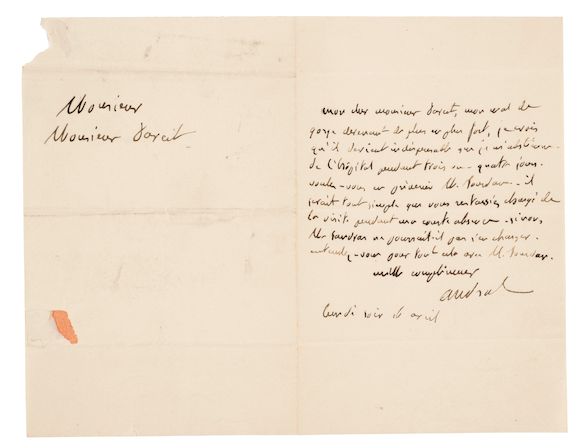 Monsieur
Monsieur Darcet
mon cher monsieur Darcet, mon mal de
gorge devenant de plus en plus fort, je crois
qu'il devient indispensable que je m'abstienne
de l'hôpital pendant trois ou quatre jours.
voulez-vous en prévenir M. Jourdan. il
serait tout simple que vous restassiez chargé de
la visite pendant ma courte absence. sinon,
M. Sandras ne pourrait-il pas s'en charger.
entendez-vous pour tout cela avec M. Jourdan.
mille complimens
andral
lundi soir 16 avril